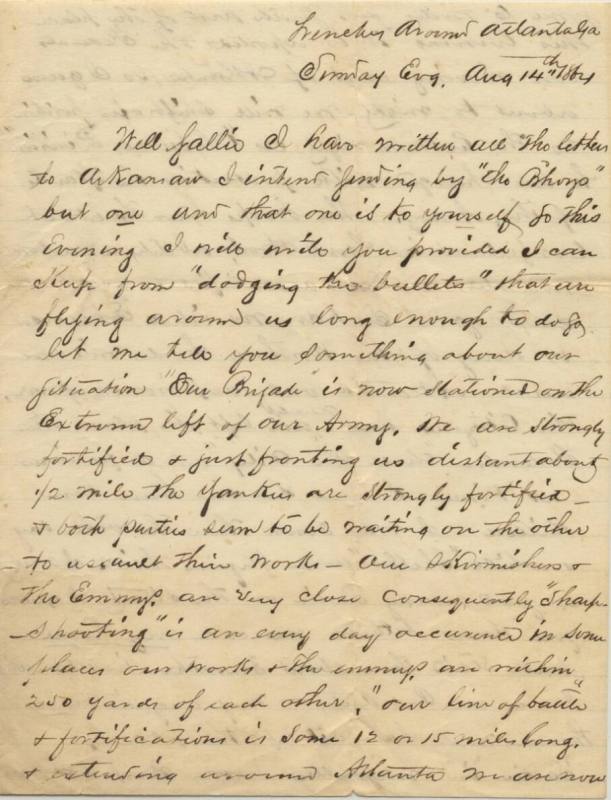 Trenches Around Atlanta Ga
Sunday Evg. Aug 14th 1864
Well Sallie I have written all the letters
to Arkansaw I intend sending by "the Bhoys"
but one and that one is to yourself, So this
Evening I will write you provided I can
Keep from "dodging the bullets" that are
flying around us long enough to do so,
let me tell you something about our
Situation "Our Brigade" is now stationed on the
Extreme left of our Army. We are strongly
fortified & just fronting us distant about
1/2 mile the Yankees are strongly fortified –
& both parties seem to be waiting on the other
to assault their works – Our Skirmishers &
the Enemys are very close Consequently "Sharp-
-shooting" is an every day occurence in some
places our works & the enemys are within
250 yards of each other, "our line of battle"
& fortifications is Some 12 or 15 miles long.
& extending around Atlanta we are now